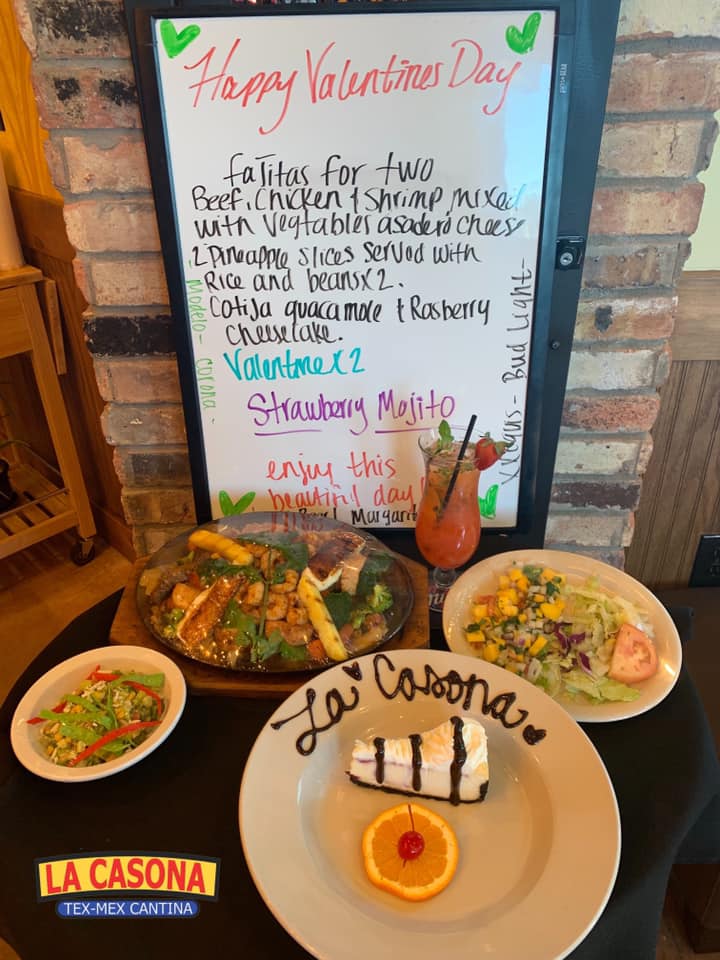 Happy Valentines Day
faJitas for two
Beef, Chicken & Shrimp, mixed
with Vegtables asadero cheese
2 Pineapple slices served with
Rice and beans x2.
Cotija guacamole & Rasberry
cheesecake.
Valentine x 2
Strawberry Mojito
enjoy this
beautiful day!
Margarit
- Modelo - corona -
Bud Light -
La Casona
LA CASONA
TEX-MEX CANTINA